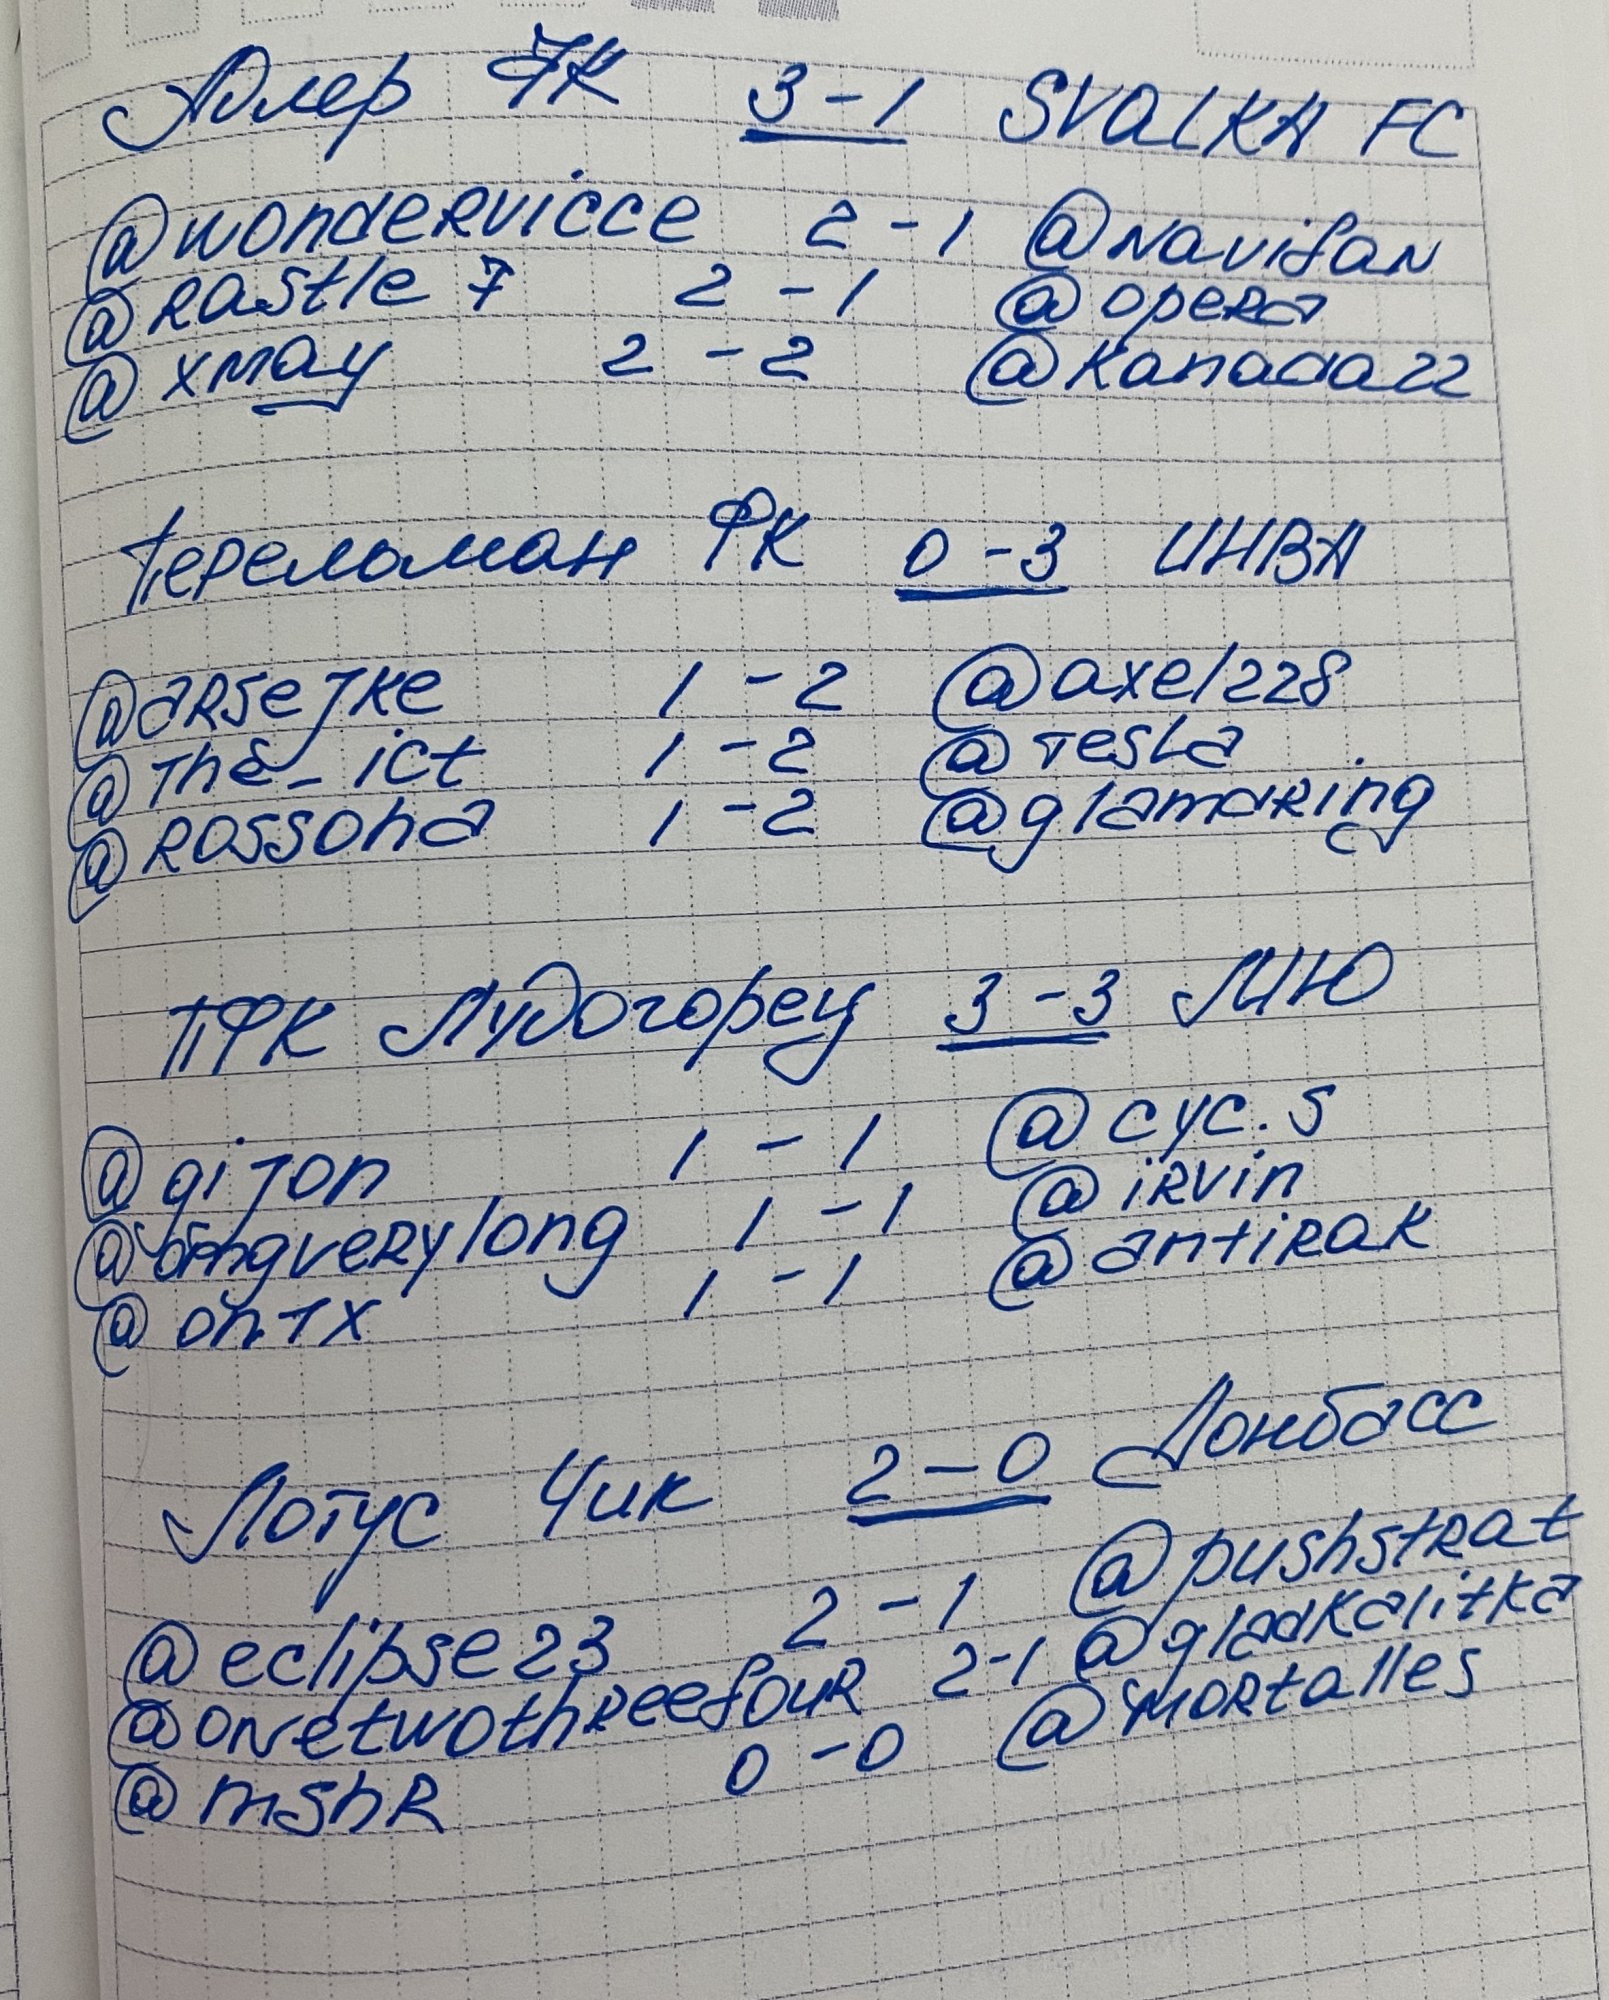 Адлер ФК 3-1 SVALKA FC
@wondervicce 2-1 @navifan
@rastle7 2-1 @opera
@xmay 2-2 @kanada22
Перельман ФК 0-3 ИНВА
@arsejke 1-2 @axel228
@the_ict 1-2 @tesla
@rossoha 1-2 @glamdring
ПФК Лудогорец 3-3 МЮ
@gijon 1-1 @cyc.s
@omgverylong 1-1 @irvin
@on1x 1-1 @antirak
Лотус Чик 2-0 Донбасс
@eclipse23 2-1 @pushstrat
@onetwothreefour 2-1 @gladkalitka
@mshr 0-0 @mortalles